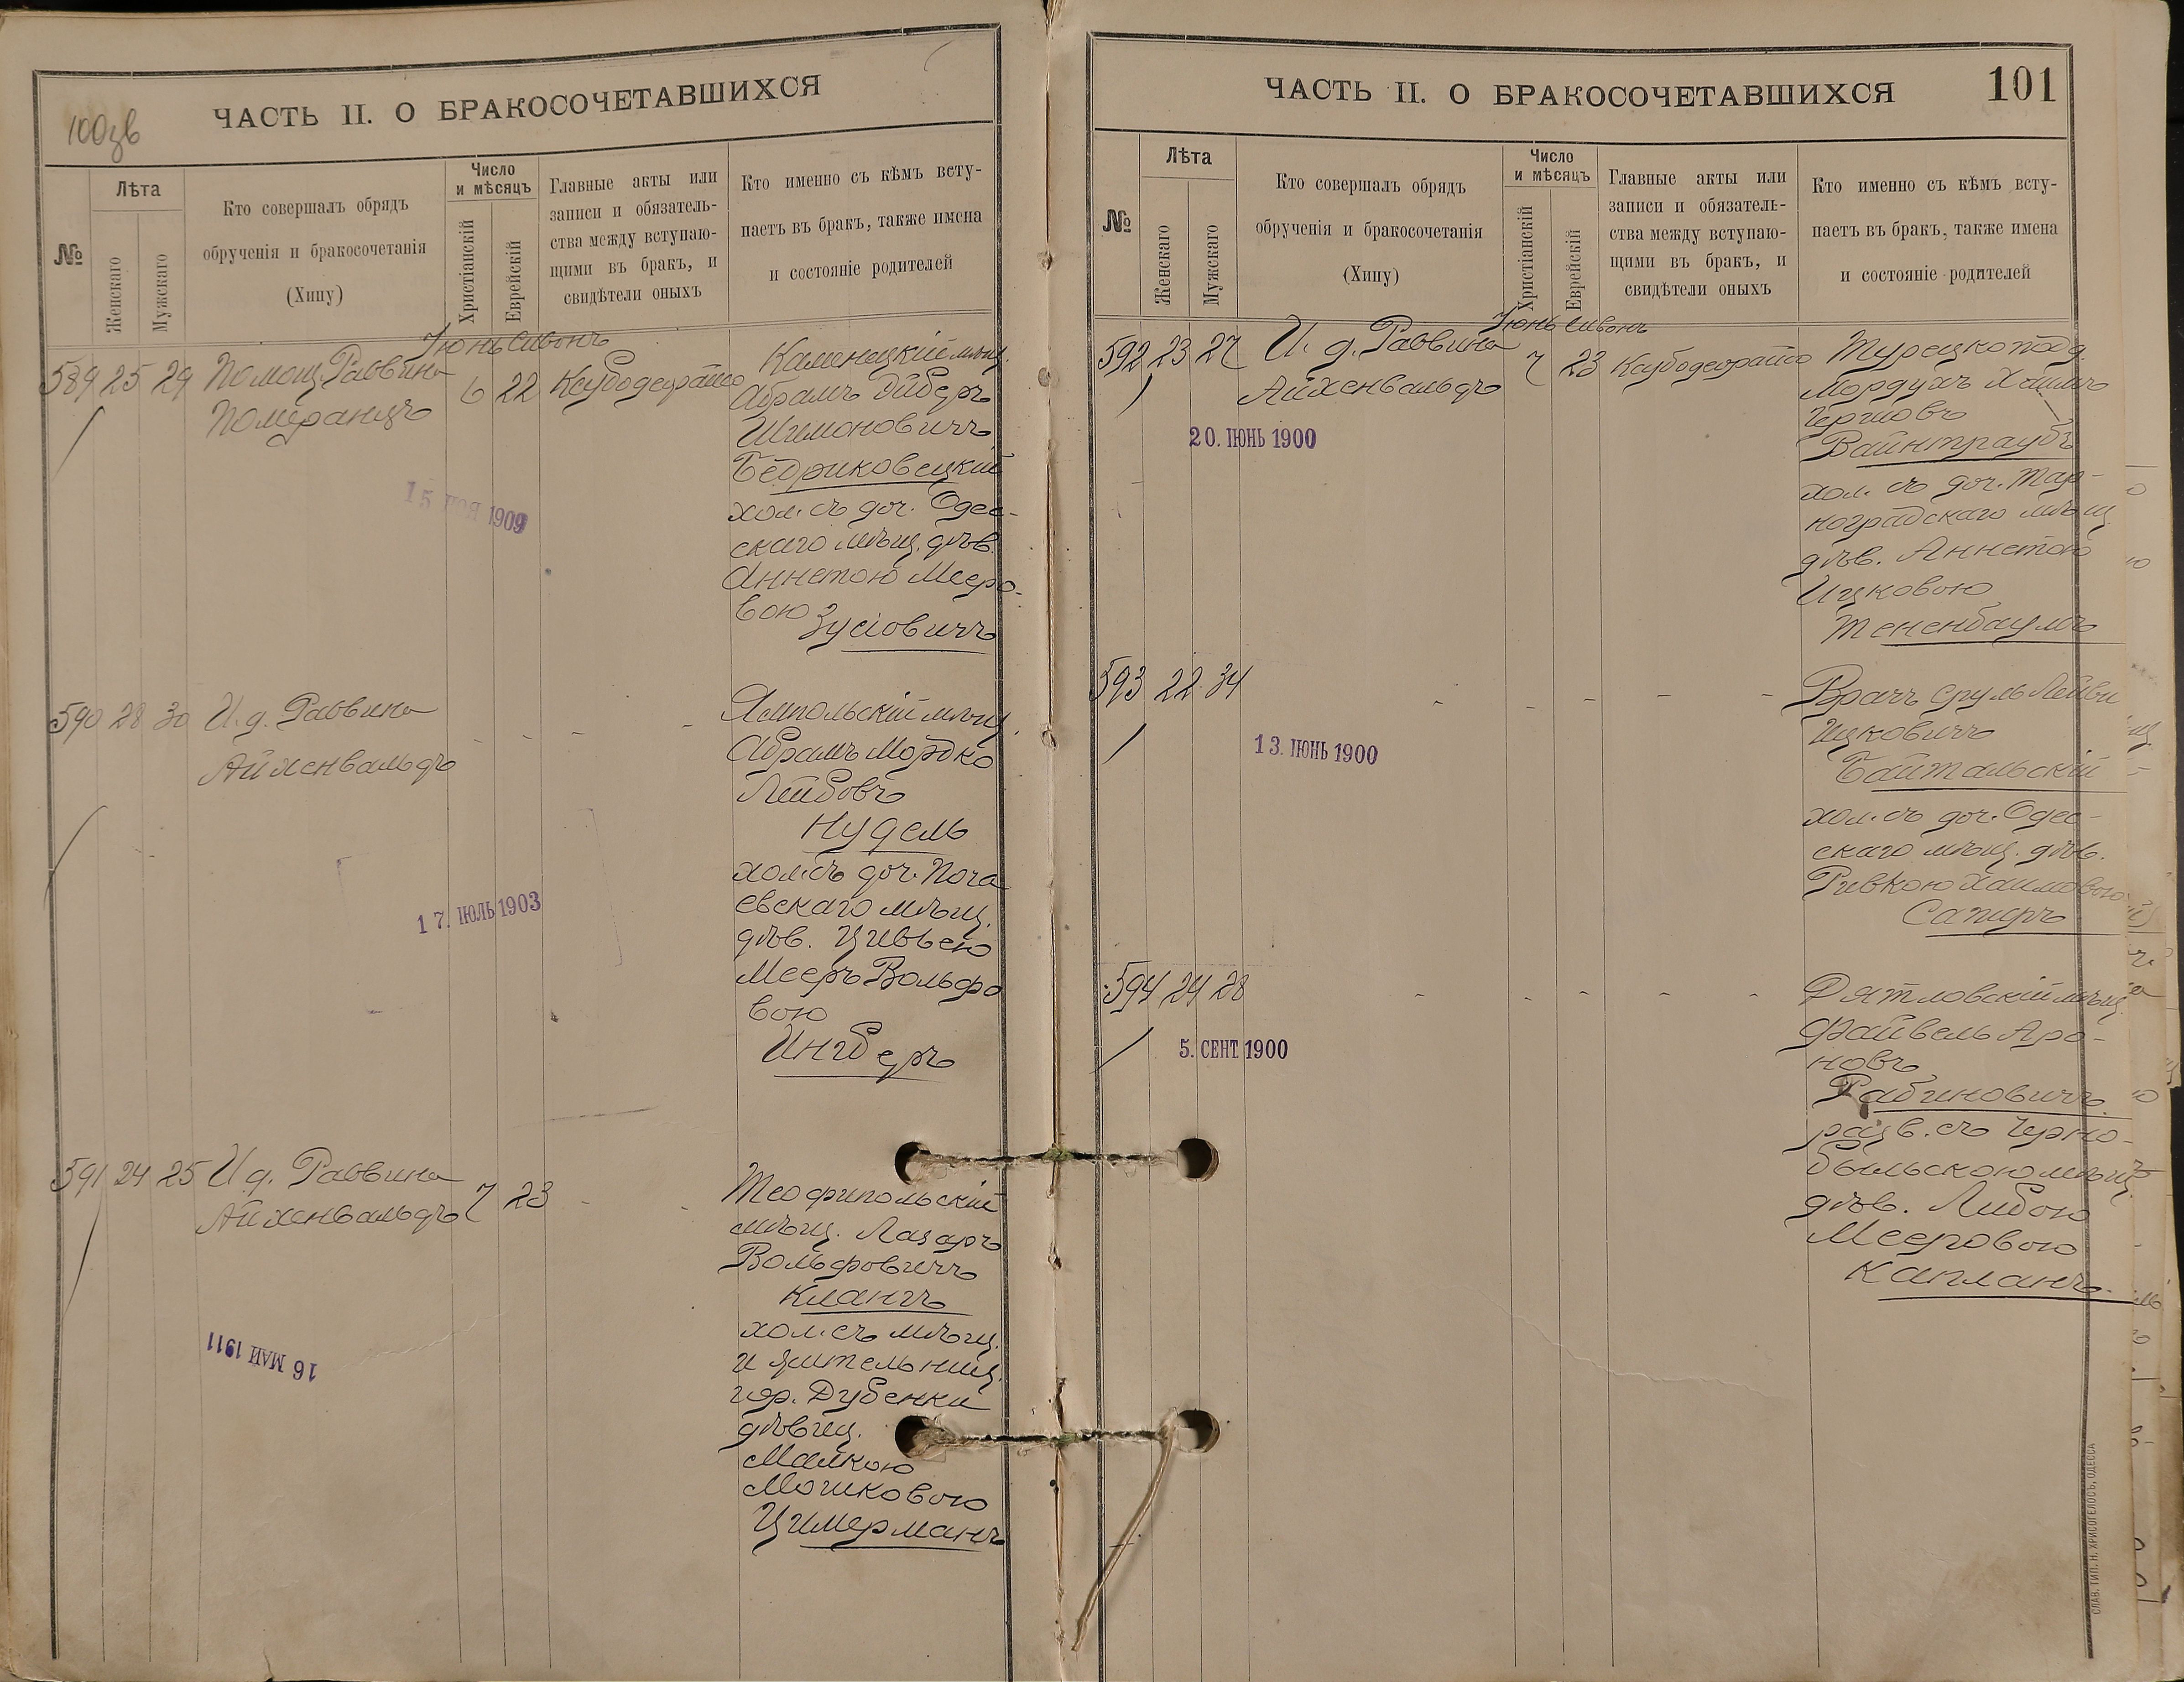 100зв
ЧАСТЬ II. О БРАКОСОЧЕТАВШИХСЯ
№
Лѣта
Женскаго
Мужскаго
Кто совершалъ обрядъ
обрученія и бракосочетанія
(Хипу)
Число
и мѣсяцъ
Христіанскій
Еврейскій
Главные акты или
записи и обязатель-
ства между вступаю-
щими въ бракъ, и
свидѣтели оныхъ
Кто именно съ кѣмъ всту-
паетъ въ бракъ, также имена
и состояніе родителей
Іюнь Сивонъ
589 25 29
Помощ. Раввина
Померанцъ
6 22
Каменецкій мѣщ.
Абрамъ
Шимоновичъ
Бедриковецкій
хол. съ доч. Одес-
скаго мѣщ. дѣв.
Аннетою Мееро-
вою
Зусіовичъ
15 1909
590 28 30
И. д. Раввина
Айхенвальдъ
- - - -
Ямпольскій мѣщ.
Абрамъ Мордко
Лейбовъ
Нудель
хол. съ доч. Поча
евскаго мѣщ.
дѣв. Цивьею
Мееръ Вольфо
вою
Ингберъ
17. ІЮЛЬ 1903
591 24 25
И д. Раввина
Айхенвальдъ
7 23 - -
Теофипольскій
мѣщ. Лазаръ
Вольфовичъ
Клангъ
хол. съ мѣщ.
и жительниц.
гор. Дубенки
дѣвиц.
Малкою
Мошковою
Цимерманъ
16 МАЙ 1911
ЧАСТЬ II. О БРАКОСОЧЕТАВШИХСЯ
101
№
Лѣта
Женскаго
Мужскаго
Кто совершалъ обрядъ
обрученія и бракосочетанія
(Хипу)
Число
и мѣсяцъ
Христіанскій
Еврейскій
Главные акты или
записи и обязатель-
ства между вступаю-
щими въ бракъ, и
свидѣтели оныхъ
Кто именно съ кѣмъ всту-
паетъ въ бракъ, также имена
и состояніе родителей
Іюнь Сивонъ
592 23 27
И. д. Раввина
Айхенвальдъ
7 23
Мордухъ Хаимъ
Гершовъ
Вайнтраубъ
хол. съ доч. Тар-
ноградскаго мѣщ.
дѣв. Аннетою
Ицковою
Тененбаумъ
20. ІЮНЬ 1900
593 22 34
- - - - -
Врачъ Сруль Лейви
Ицковичъ
Байтальскій
хол. съ доч. Одес-
скаго мѣщ. дѣв.
Ривкою Хаимовою
Сапиръ
13. ІЮНЬ 1900
594 24 28
- - - - -
Дятловскій мѣщ.
Файвель Аро-
новъ
Рабиновичъ
разв. съ Черно-
быльскою мѣщ.
дѣв. Либою
Мееровою
Капланъ
5. СЕНТ. 1900
СЛАВ. ТИП. Н. ХРИСОГЕЛОСЪ, ОДЕССА